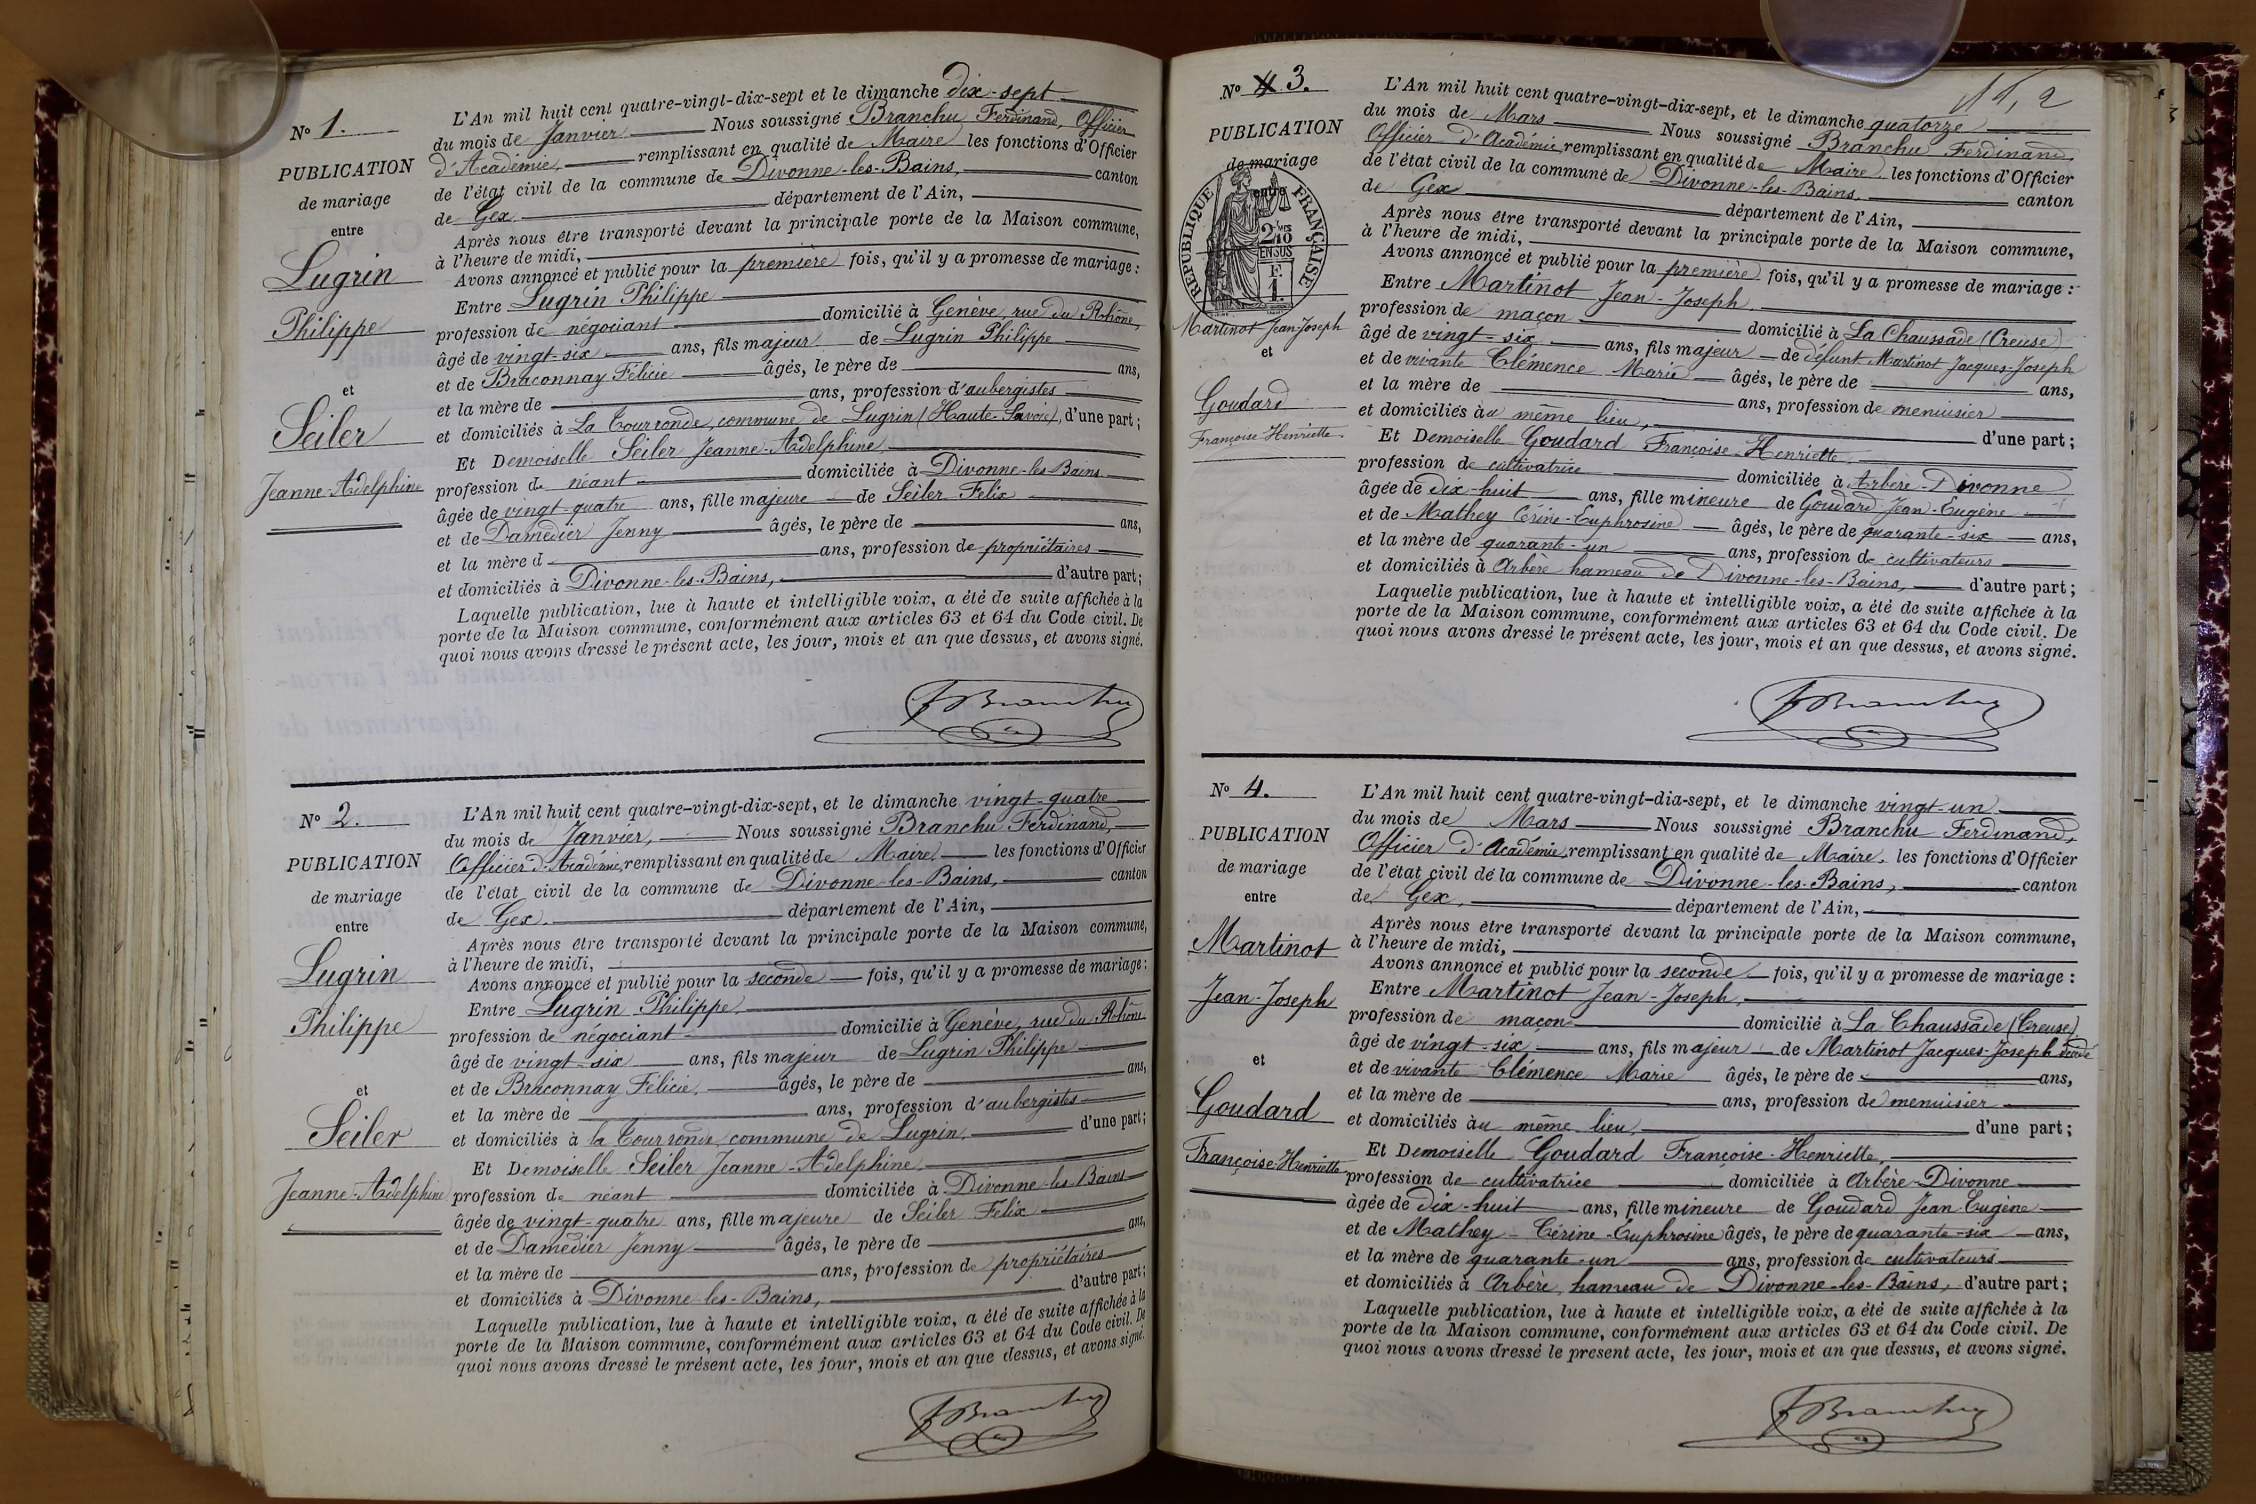 N° 1.
PUBLICATION
de mariage
entre
Lugrin
Philippe
et
Seiler
Jeanne-Adelphine
L'An mil huit cent quatre-vingt-dix-sept et le dimanche dix-sept
du mois de Janvier Nous soussigné Branchu Ferdinand, Officier
d'Académie, remplissant en qualité de Maire les fonctions d'Officier
de l'état civil de la commune de Divonne-les-Bains, canton
de Gex département de l'Ain,
Après nous être transporté devant la principale porte de la Maison commune,
à l'heure de midi,
Avons annoncé et publié pour la première fois, qu'il y a promesse de mariage :
Entre Lugrin Philippe
profession de négociant domicilié à Genève, rue du Rhône,
âgé de vingt-six ans, fils majeur de Lugrin Philippe
et de Braconnay Félicie âgés, le père de ans,
et la mère de ans, profession d'aubergistes
et domiciliés à La Tourronde, commune de Lugrin (Haute-Savoie), d'une part ;
Et Demoiselle Seiler Jeanne-Adelphine
profession de néant domiciliée à Divonne-les-Bains
âgée de vingt-quatre ans, fille majeure de Seiler Felix
et de Damedier Jenny âgés, le père de ans,
et la mère d ans, profession de propriétaires
et domiciliés à Divonne-les-Bains, d'autre part ;
Laquelle publication, lue à haute et intelligible voix, a été de suite affichée à la
porte de la Maison commune, conformément aux articles 63 et 64 du Code civil. De
quoi nous avons dressé le présent acte, les jour, mois et an que dessus, et avons signé.
F Branchu
N° 2.
PUBLICATION
de mariage
entre
Lugrin
Philippe
et
Seiler
Jeanne-Adelphine
L'An mil huit cent quatre-vingt-dix-sept, et le dimanche vingt-quatre
du mois de Janvier, Nous soussigné Branchu Ferdinand,
Officier d'Académie, remplissant en qualité de Maire les fonctions d'Officier
de l'état civil de la commune de Divonne-les-Bains, canton
de Gex. département de l'Ain,
Après nous être transporté devant la principale porte de la Maison commune,
à l'heure de midi,
Avons annoncé et publié pour la seconde fois, qu'il y a promesse de mariage :
Entre Lugrin Philippe.
profession de négociant domicilié à Genève, rue du Rhône
âgé de vingt-six ans, fils majeur de Lugrin Philippe
et de Braconnay Félicie. âgés, le père de ans,
et la mère de ans, profession d'aubergistes
et domiciliés à la Tourronde, commune de Lugrin. d'une part ;
Et Demoiselle Seiler Jeanne-Adelphine.
profession de néant domiciliée à Divonne-les-Bains
âgée de vingt-quatre ans, fille majeure de Seiler Felix
et de Damedier Jenny âgés, le père de ans,
et la mère de ans, profession de propriétaires
et domiciliés à Divonne-les-Bains, d'autre part ;
Laquelle publication, lue à haute et intelligible voix, a été de suite affichée à la
porte de la Maison commune, conformément aux articles 63 et 64 du Code civil. De
quoi nous avons dressé le présent acte, les jour, mois et an que dessus, et avons signé.
F Branchu
N° 4 3.
PUBLICATION
de mariage
entre
REPUBLIQUE FRANÇAISE
2/10 EN SUS
F. 1.
Martinot Jean-Joseph
et
Goudard
Françoise Henriette
2
L'An mil huit cent quatre-vingt-dix-sept, et le dimanche quatorze
du mois de Mars Nous soussigné Branchu Ferdinand,
Officier d'Académie, remplissant en qualité de Maire les fonctions d'Officier
de l'état civil de la commune de Divonne-les-Bains, canton
de Gex département de l'Ain,
Après nous être transporté devant la principale porte de la Maison commune,
à l'heure de midi,
Avons annoncé et publié pour la première fois, qu'il y a promesse de mariage :
Entre Martinot Jean-Joseph.
profession de maçon domicilié à La Chaussade (Creuse)
âgé de vingt-six ans, fils majeur de défunt Martinot Jacques-Joseph
et de vivante Clémence Marie âgés, le père de ans,
et la mère de ans, profession de menuisier
et domiciliés à au même lieu, d'une part ;
Et Demoiselle Goudard Françoise-Henriette
profession de cultivatrice domiciliée à Arbère-Divonne
âgée de dix-huit ans, fille mineure de Goudard Jean-Eugène
et de Mathey Cérine-Euphrosine âgés, le père de quarante-six ans,
et la mère de quarante-un ans, profession de cultivateurs
et domiciliés à Arbère hameau de Divonne-les-Bains, d'autre part ;
Laquelle publication, lue à haute et intelligible voix, a été de suite affichée à la
porte de la Maison commune, conformément aux articles 63 et 64 du Code civil. De
quoi nous avons dressé le présent acte, les jour, mois et an que dessus, et avons signé.
F Branchu
N° 4.
PUBLICATION
de mariage
entre
Martinot
Jean-Joseph
et
Goudard
Françoise-Henriette
L'An mil huit cent quatre-vingt-dix-sept, et le dimanche vingt-un
du mois de Mars Nous soussigné Branchu Ferdinand,
Officier d'Académie, remplissant en qualité de Maire, les fonctions d'Officier
de l'état civil de la commune de Divonne-les-Bains, canton
de Gex, département de l'Ain,
Après nous être transporté devant la principale porte de la Maison commune,
à l'heure de midi,
Avons annoncé et publié pour la seconde fois, qu'il y a promesse de mariage :
Entre Martinot Jean-Joseph,
profession de maçon domicilié à La Chaussade (Creuse)
âgé de vingt-six ans, fils majeur de Martinot Jacques-Joseph décédé
et de vivante Clémence Marie âgés, le père de ans,
et la mère de ans, profession de menuisier
et domiciliés à au même lieu, d'une part ;
Et Demoiselle Goudard Françoise-Henriette,
profession de cultivatrice domiciliée à Arbère-Divonne
âgée de dix-huit ans, fille mineure de Goudard Jean-Eugène
et de Mathey Cérine-Euphrosine âgés, le père de quarante-six ans,
et la mère de quarante-un ans, profession de cultivateurs
et domiciliés à Arbère, hameau de Divonne-les-Bains, d'autre part ;
Laquelle publication, lue à haute et intelligible voix, a été de suite affichée à la
porte de la Maison commune, conformément aux articles 63 et 64 du Code civil. De
quoi nous avons dressé le présent acte, les jour, mois et an que dessus, et avons signé.
F Branchu